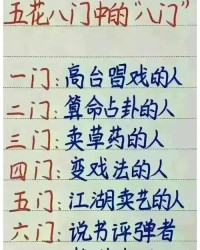 五花八门中的“八门”
一门：高台唱戏的人
二门：算命占卦的人
三门：卖草药的人
四门：变戏法的人
五门：江湖卖艺的人
六门：说书评弹者